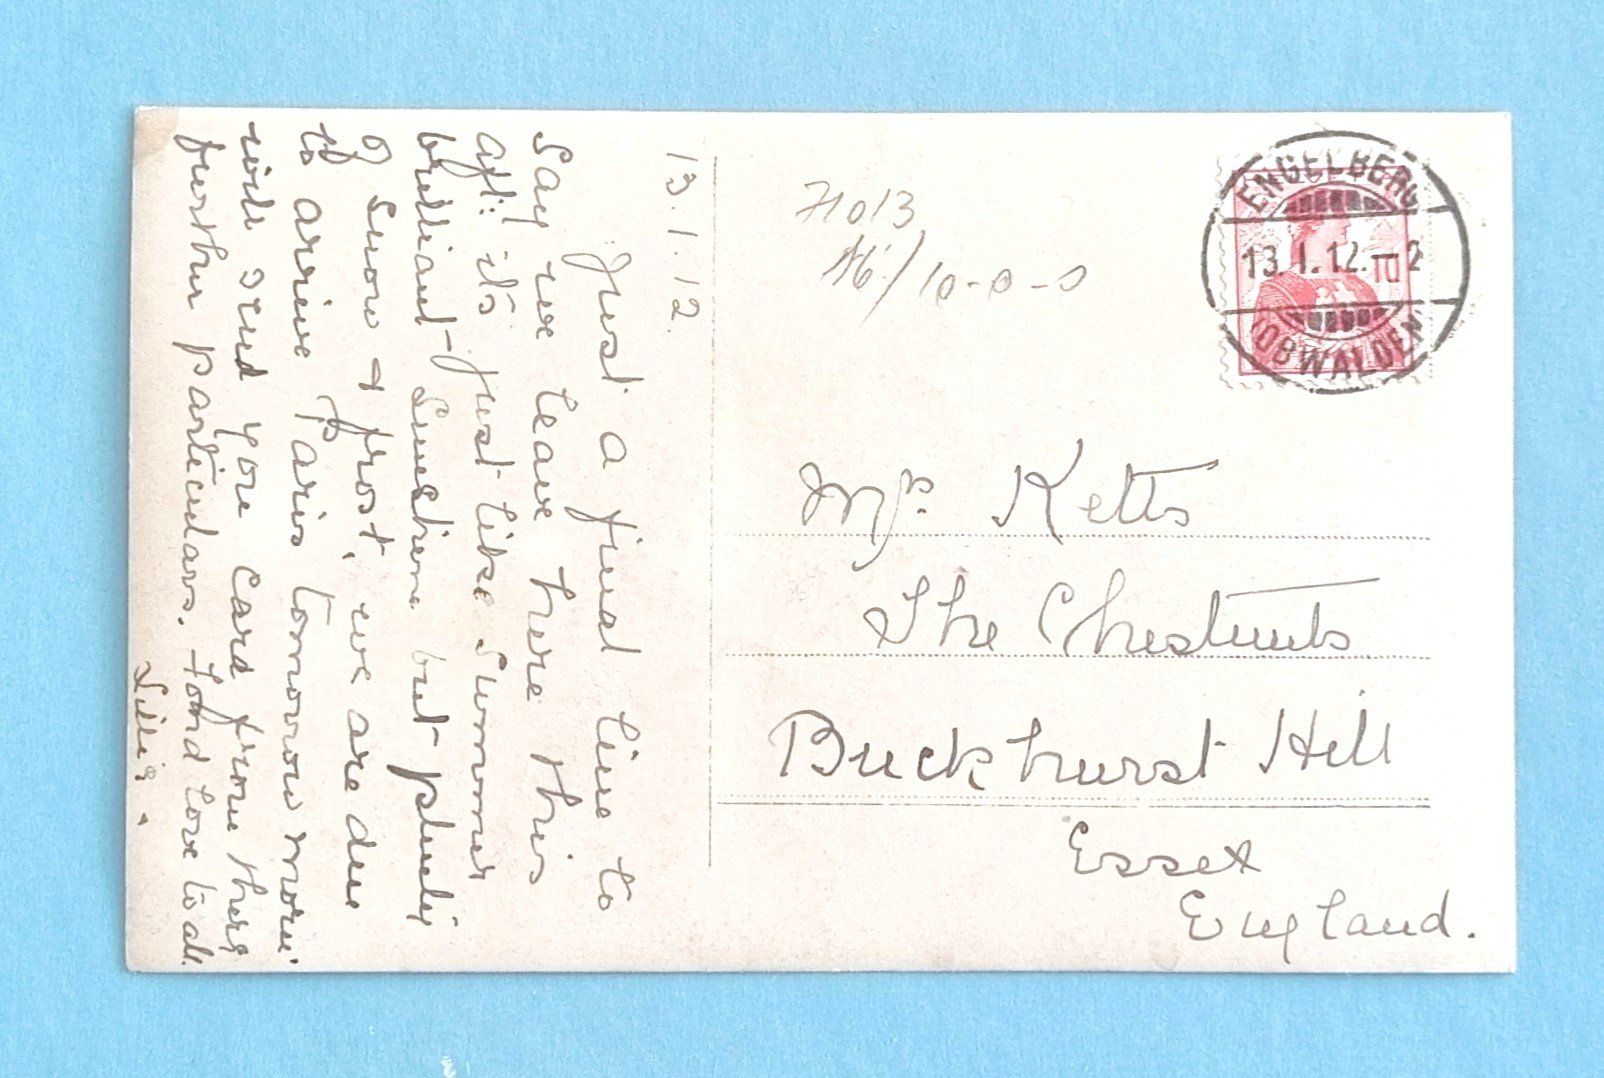 13.1.12.
Just a final line to
say we leave here this
aft: its just like summer
brilliant sunshine but plenty
of snow & frost, we are due
to arrive Paris tomorrow morn:
will send you card from there
further particulars. Fond love to all.
71013
10-0-0
ENGELBERG
13.I.12.-2
(OBWALDEN)
10
Mrs. Ketts
The Chestnuts
Buckhurst Hill
Essex
England.